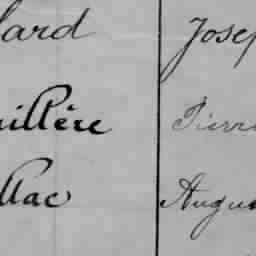 lard Josep
uillère Pierre
llac Augus